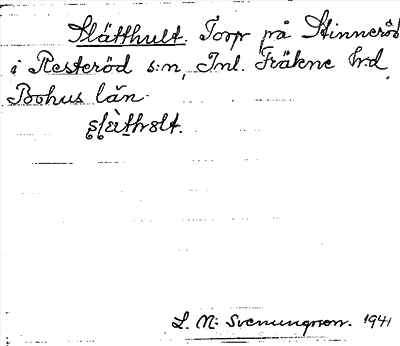 Slätthult. Torp på Stinneröd
i Resteröd s:n, Inl. Fräkne h:d,
Bohus län.
L. N: Svenungsson. 1941